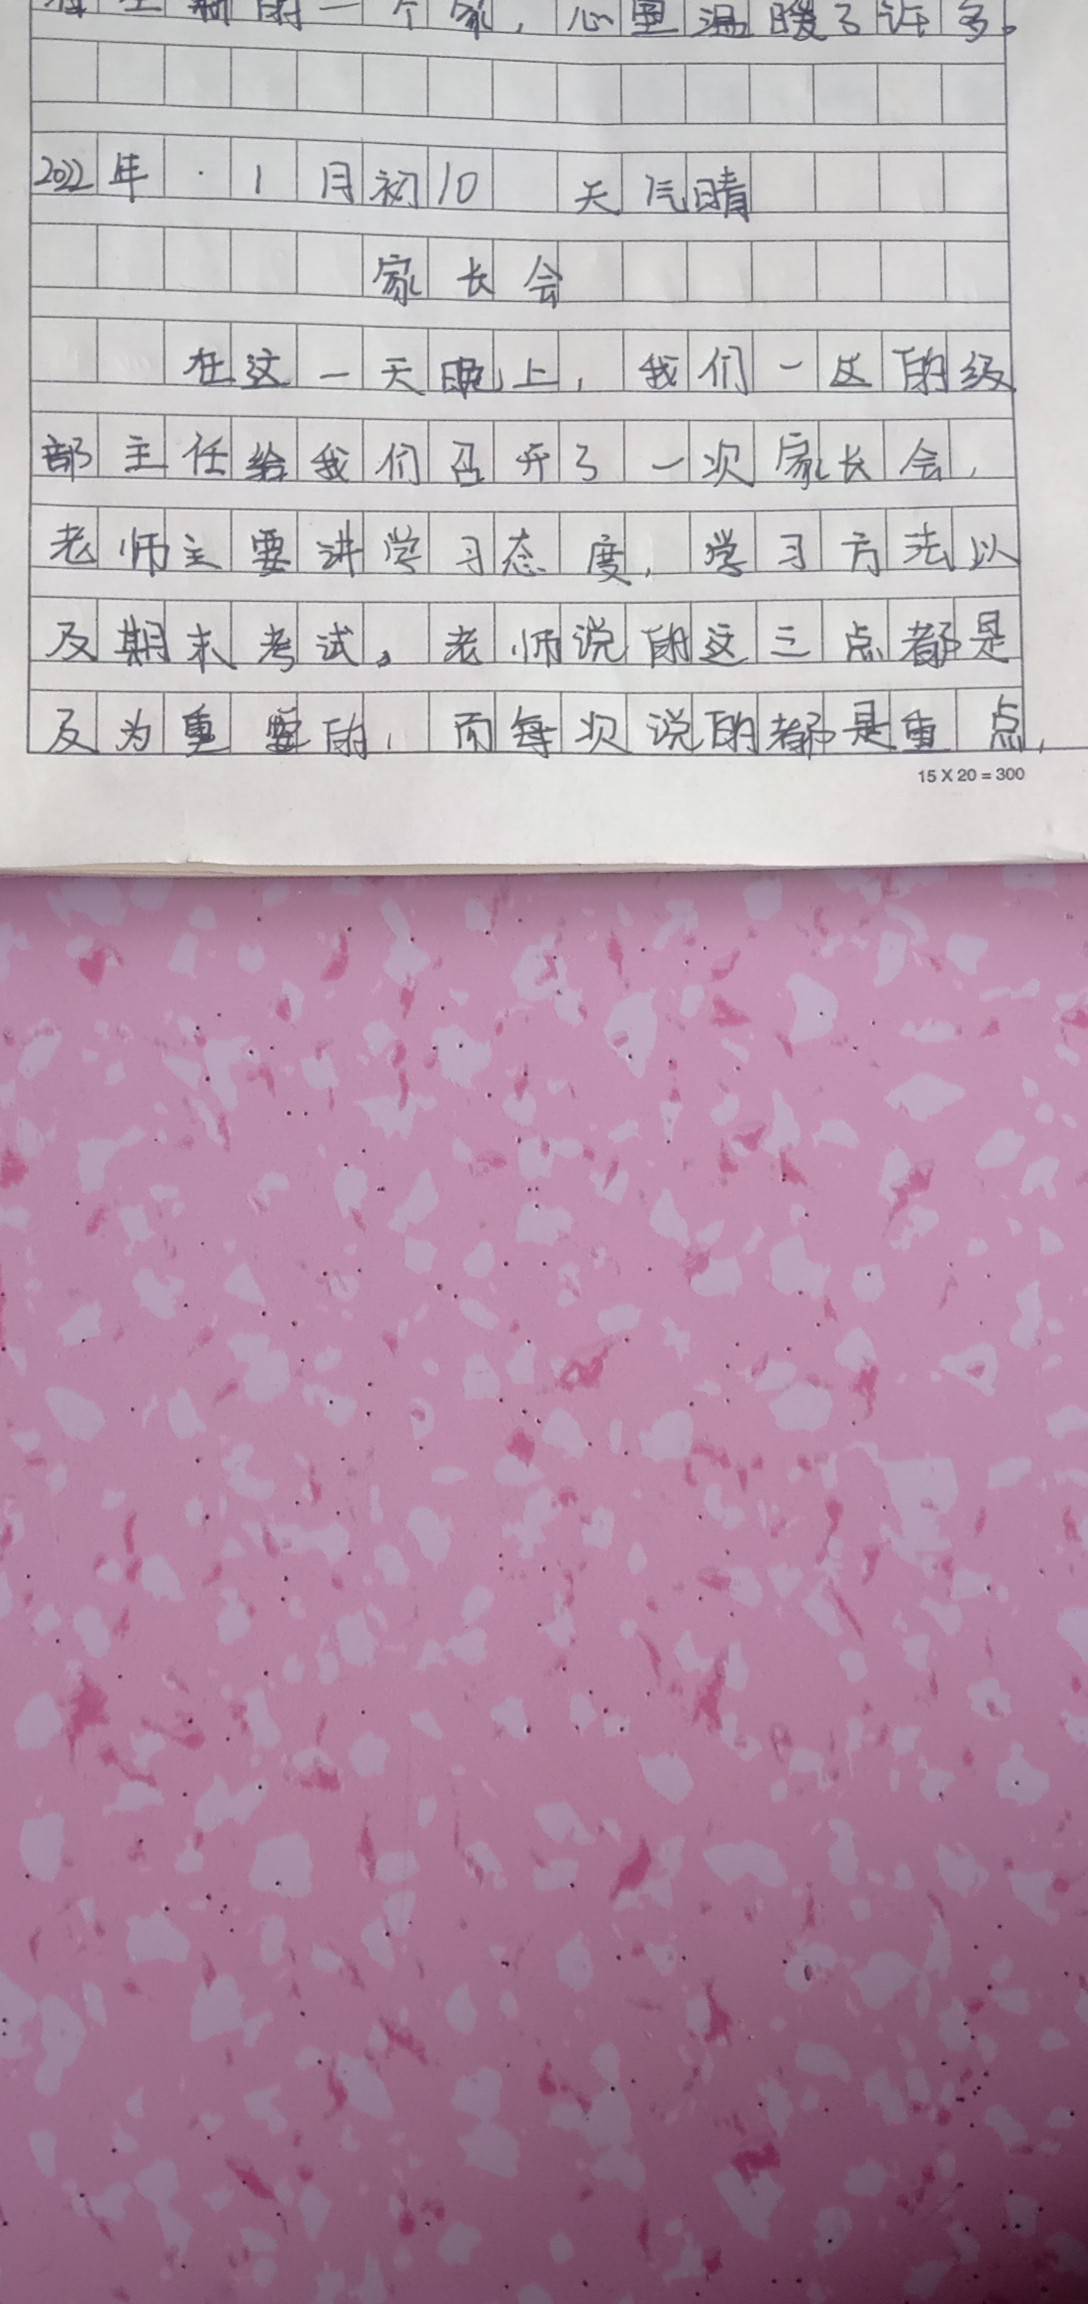 新的一个家,心里温暖了许多。
2022年·1月初10 天气晴
家长会
在这一天晚上,我们一区的级
部主任给我们召开了一次家长会,
老师主要讲学习态度,学习方法以
及期末考试。老师说的这三点都是
及为重要的,而每次说的都是重点,
15 X 20 = 300